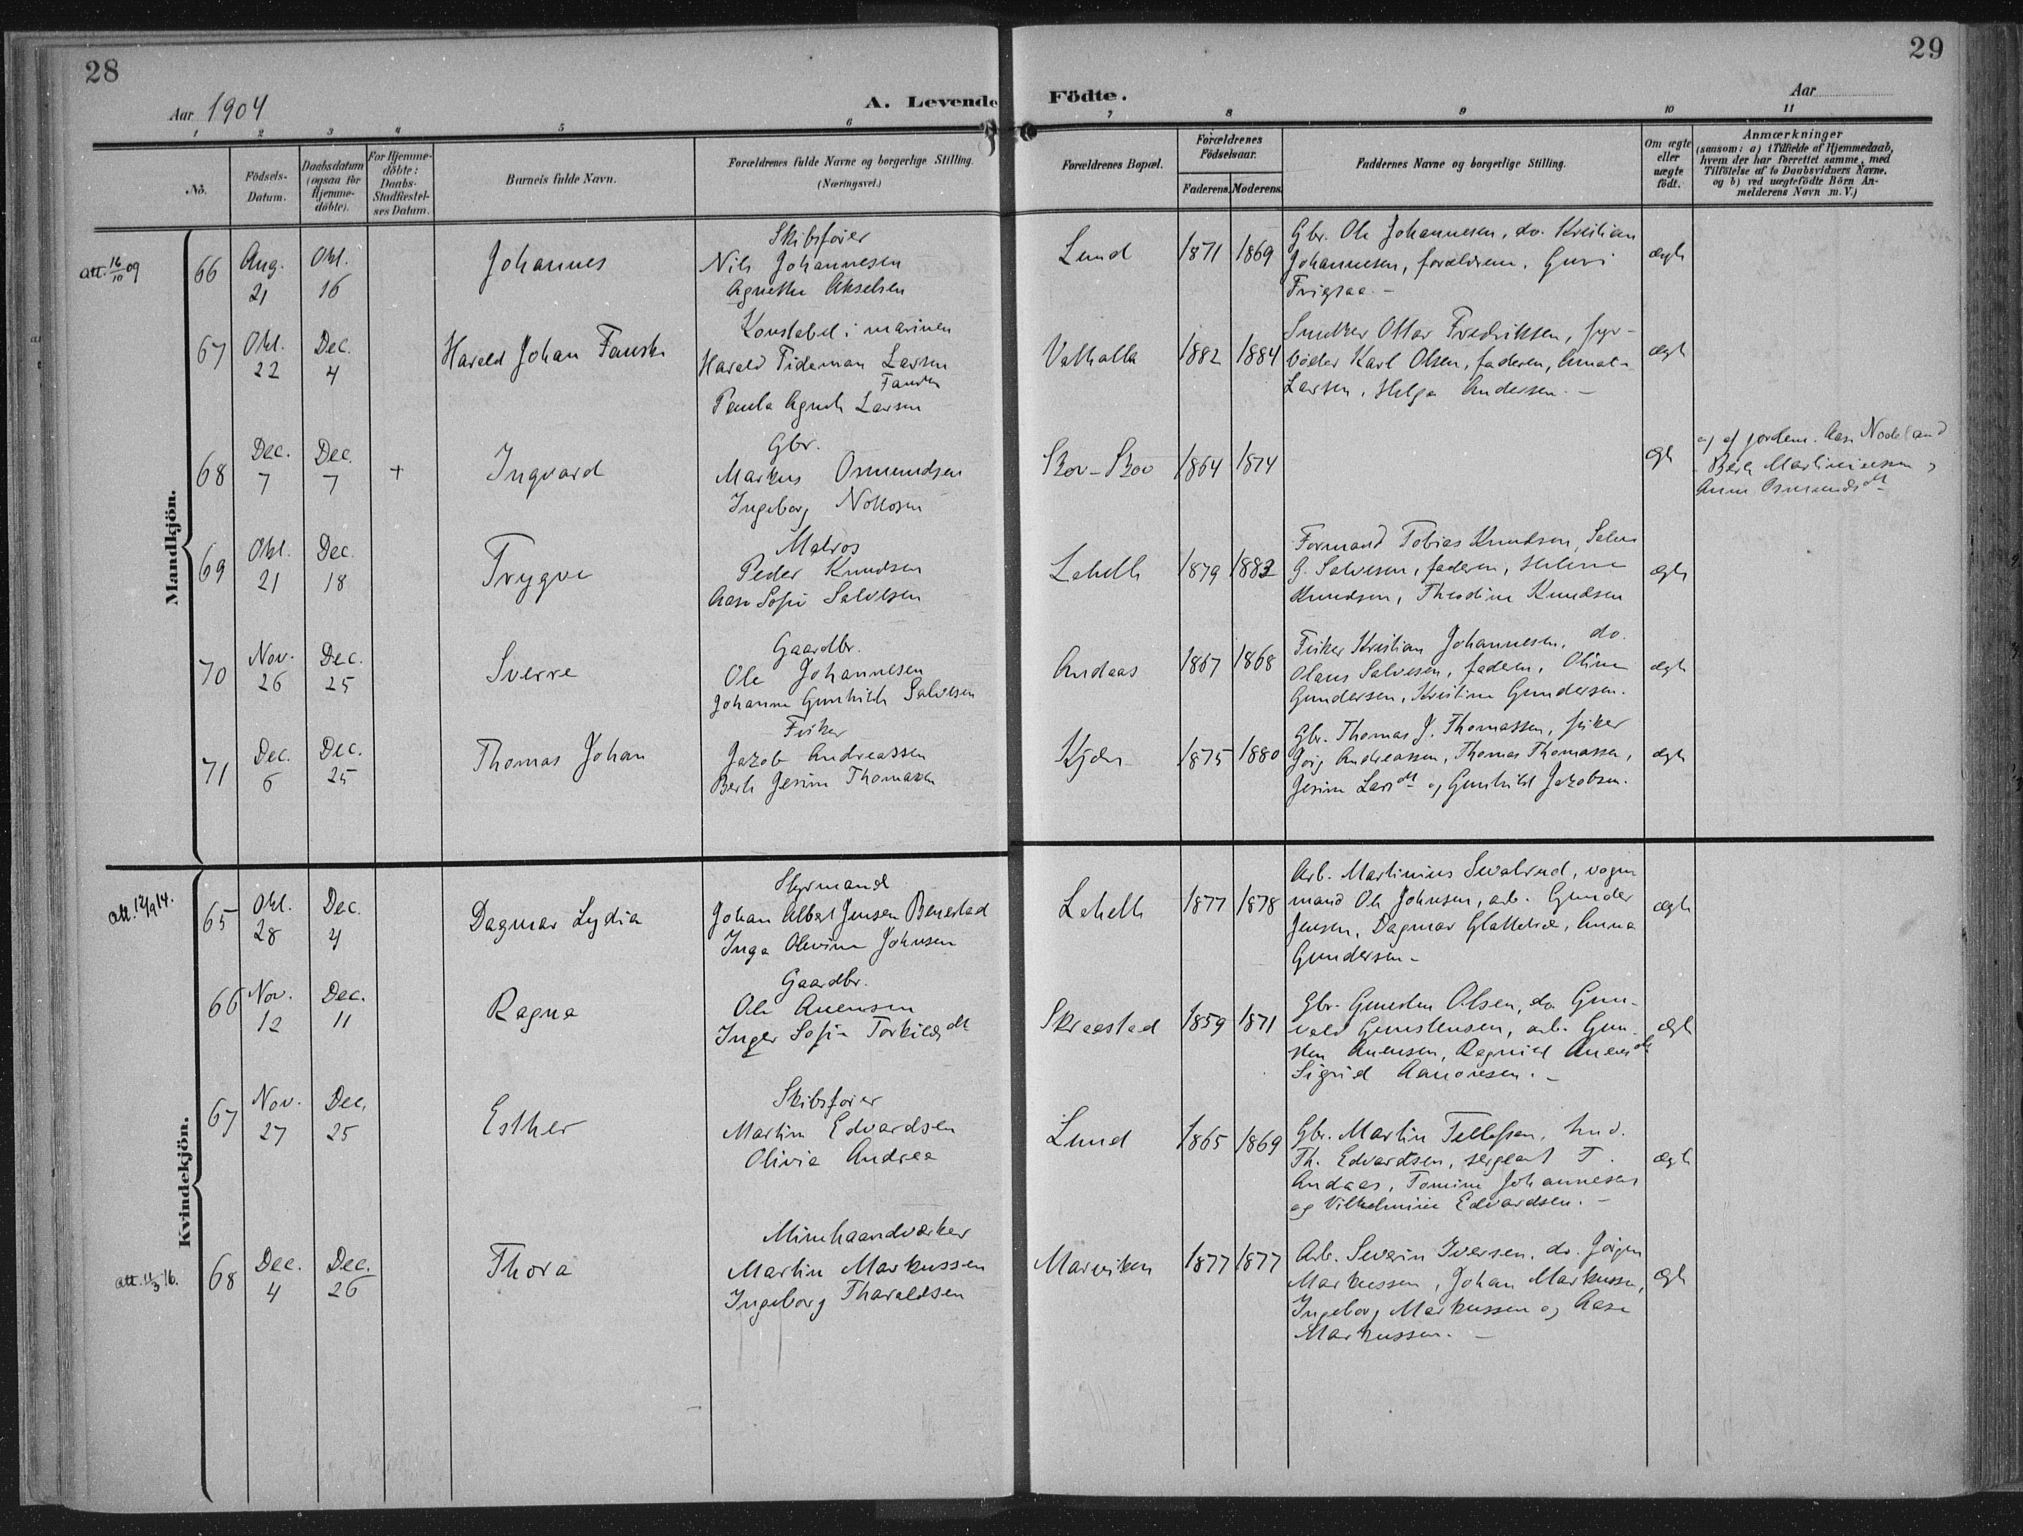 28
29
Aar 1904
A. Levende Födte.
Aar
1 2 3 4 5 6 7 8 9 10 11
No.
Födsels-
Datum.
Daabsdatum
(ogsaa for
Hjemme-
döbte).
For Hjemme-
döbte:
Daabs-
Stadfæstel-
ses Datum.
Barnets fulde Navn.
Forældrenes fulde Navne og borgerlige Stilling.
(Næringsvei.)
Forældrenes Bopæl.
Forældrenes
Födselsaar.
Faderens. Moderens.
Faddernes Navne og borgerlige Stilling.
Om ægte
eller
uægte
födt.
Anmærkninger
(saasom: a) i Tilfælde af Hjemmedaab,
hvem der har forrettet samme, med
Tilföielse af to Daabsvidners Navne.
og b) ved uægtefödte Börn An-
melderens Navn m. V.)
Mandkjön.
Att. 16/10 09
66
Aug.
21
Okt.
16
Johannes
Skibsfører
Nils Johannesen
Agnethe Akselsen
Lund
1871
1869
Gbr. Ole Johannesen, do. Kristian
Johannesen, forældrene, Guri
Frigsaa. -
ægte
67
Okt.
22
Dec.
4
Harald Johan Fauske
Konstabel i marinen
Harald Tideman Larsen
Paula Agnete Larsen
Valhalla
1882
1884
Ottar Fredriksen, fyr-
bøder Karl Olsen, faderen,
Larsen, Helga Andersen. -
ægte
68
Dec.
7
Dec.
7
+
Ingvard
Gbr.
Markus Osmundsen
Ingeborg
Skov-Skov
1864
1874
ægte
a) af jordem. Aase Nodeland
Berte Martiniussen,
Anne Osmundsdt
69
Okt.
21
Dec.
18
Trygve
Matros
Peder Knudsen
Aase Sofie Salvesen
Lahelle
1879
1883
Formand Tobias Knudsen,
G. Salvesen, faderen, Helene
Knudsen, Theodine Knudsen
ægte
70
Nov.
26
Dec.
25
Sverre
Gaardbr.
Ole Johannesen
Johanne Gunhilde Salvesen
Andaas
1867
1868
Fisker Kristian Johannesen, do.
Olaus Salvesen, faderen, Oline
Gundersen, Kristine Gundersen.
ægte
71
Dec.
6
Dec.
25
Thomas Johan
Fisker
Jakob Andreassen
Berte Jesine Thomassen
Kjær
1875
1880
Gbr. Thomas J. Thomassen, fisker
Andreassen, Thomas Thomassen,
Jesine Larsdt og Gunhild Jakobsen.
ægte
Kvindekjön.
Att. 12/9 14.
65
Okt.
28
Dec.
4
Dagmar Lydia
Styrmand
Johan Albert Jensen Benestad
Inga Olevine Johnsen
Lahelle
1877
1878
Arb. Martinius Svaland, vogn
mand Ole Johnsen, arb. Gunder
Jensen, Dagmar Glattetre, Anna
Gundersen -
ægte
66
Nov.
12
Dec.
11
Ragna
Gaardbr.
Ole Anensen
Inger Sofie Torkildsdt
Skraastad
1859
1871
Gbr. Gunsten Olsen, do. Gun-
vald Gunstensen, arb. Gun-
sten Anensen, Ragnild Anensdt
Sigrid Aanonsen. -
ægte
67
Nov.
27
Dec.
25
Esther
Skibsfører
Martin Edvardsen
Olivia Andrea
Lund
1865
1869
Gbr. Martin Tellefsen,
Th. Edvardsen, sergeant T.
Andaas, Tomine Johannesen
og Vilhelmine Edvardsen. -
ægte
Att. 11/3 16.
68
Dec.
4
Dec.
26
Thora
Minehaandværker
Martin Markussen
Ingeborg Tharaldsen
Marviken
1877
1877
Arb. Severin Iversen, do. Jørgen
Markussen, Johan Markussen,
Ingeborg Markussen og Aase
Markussen. -
ægte